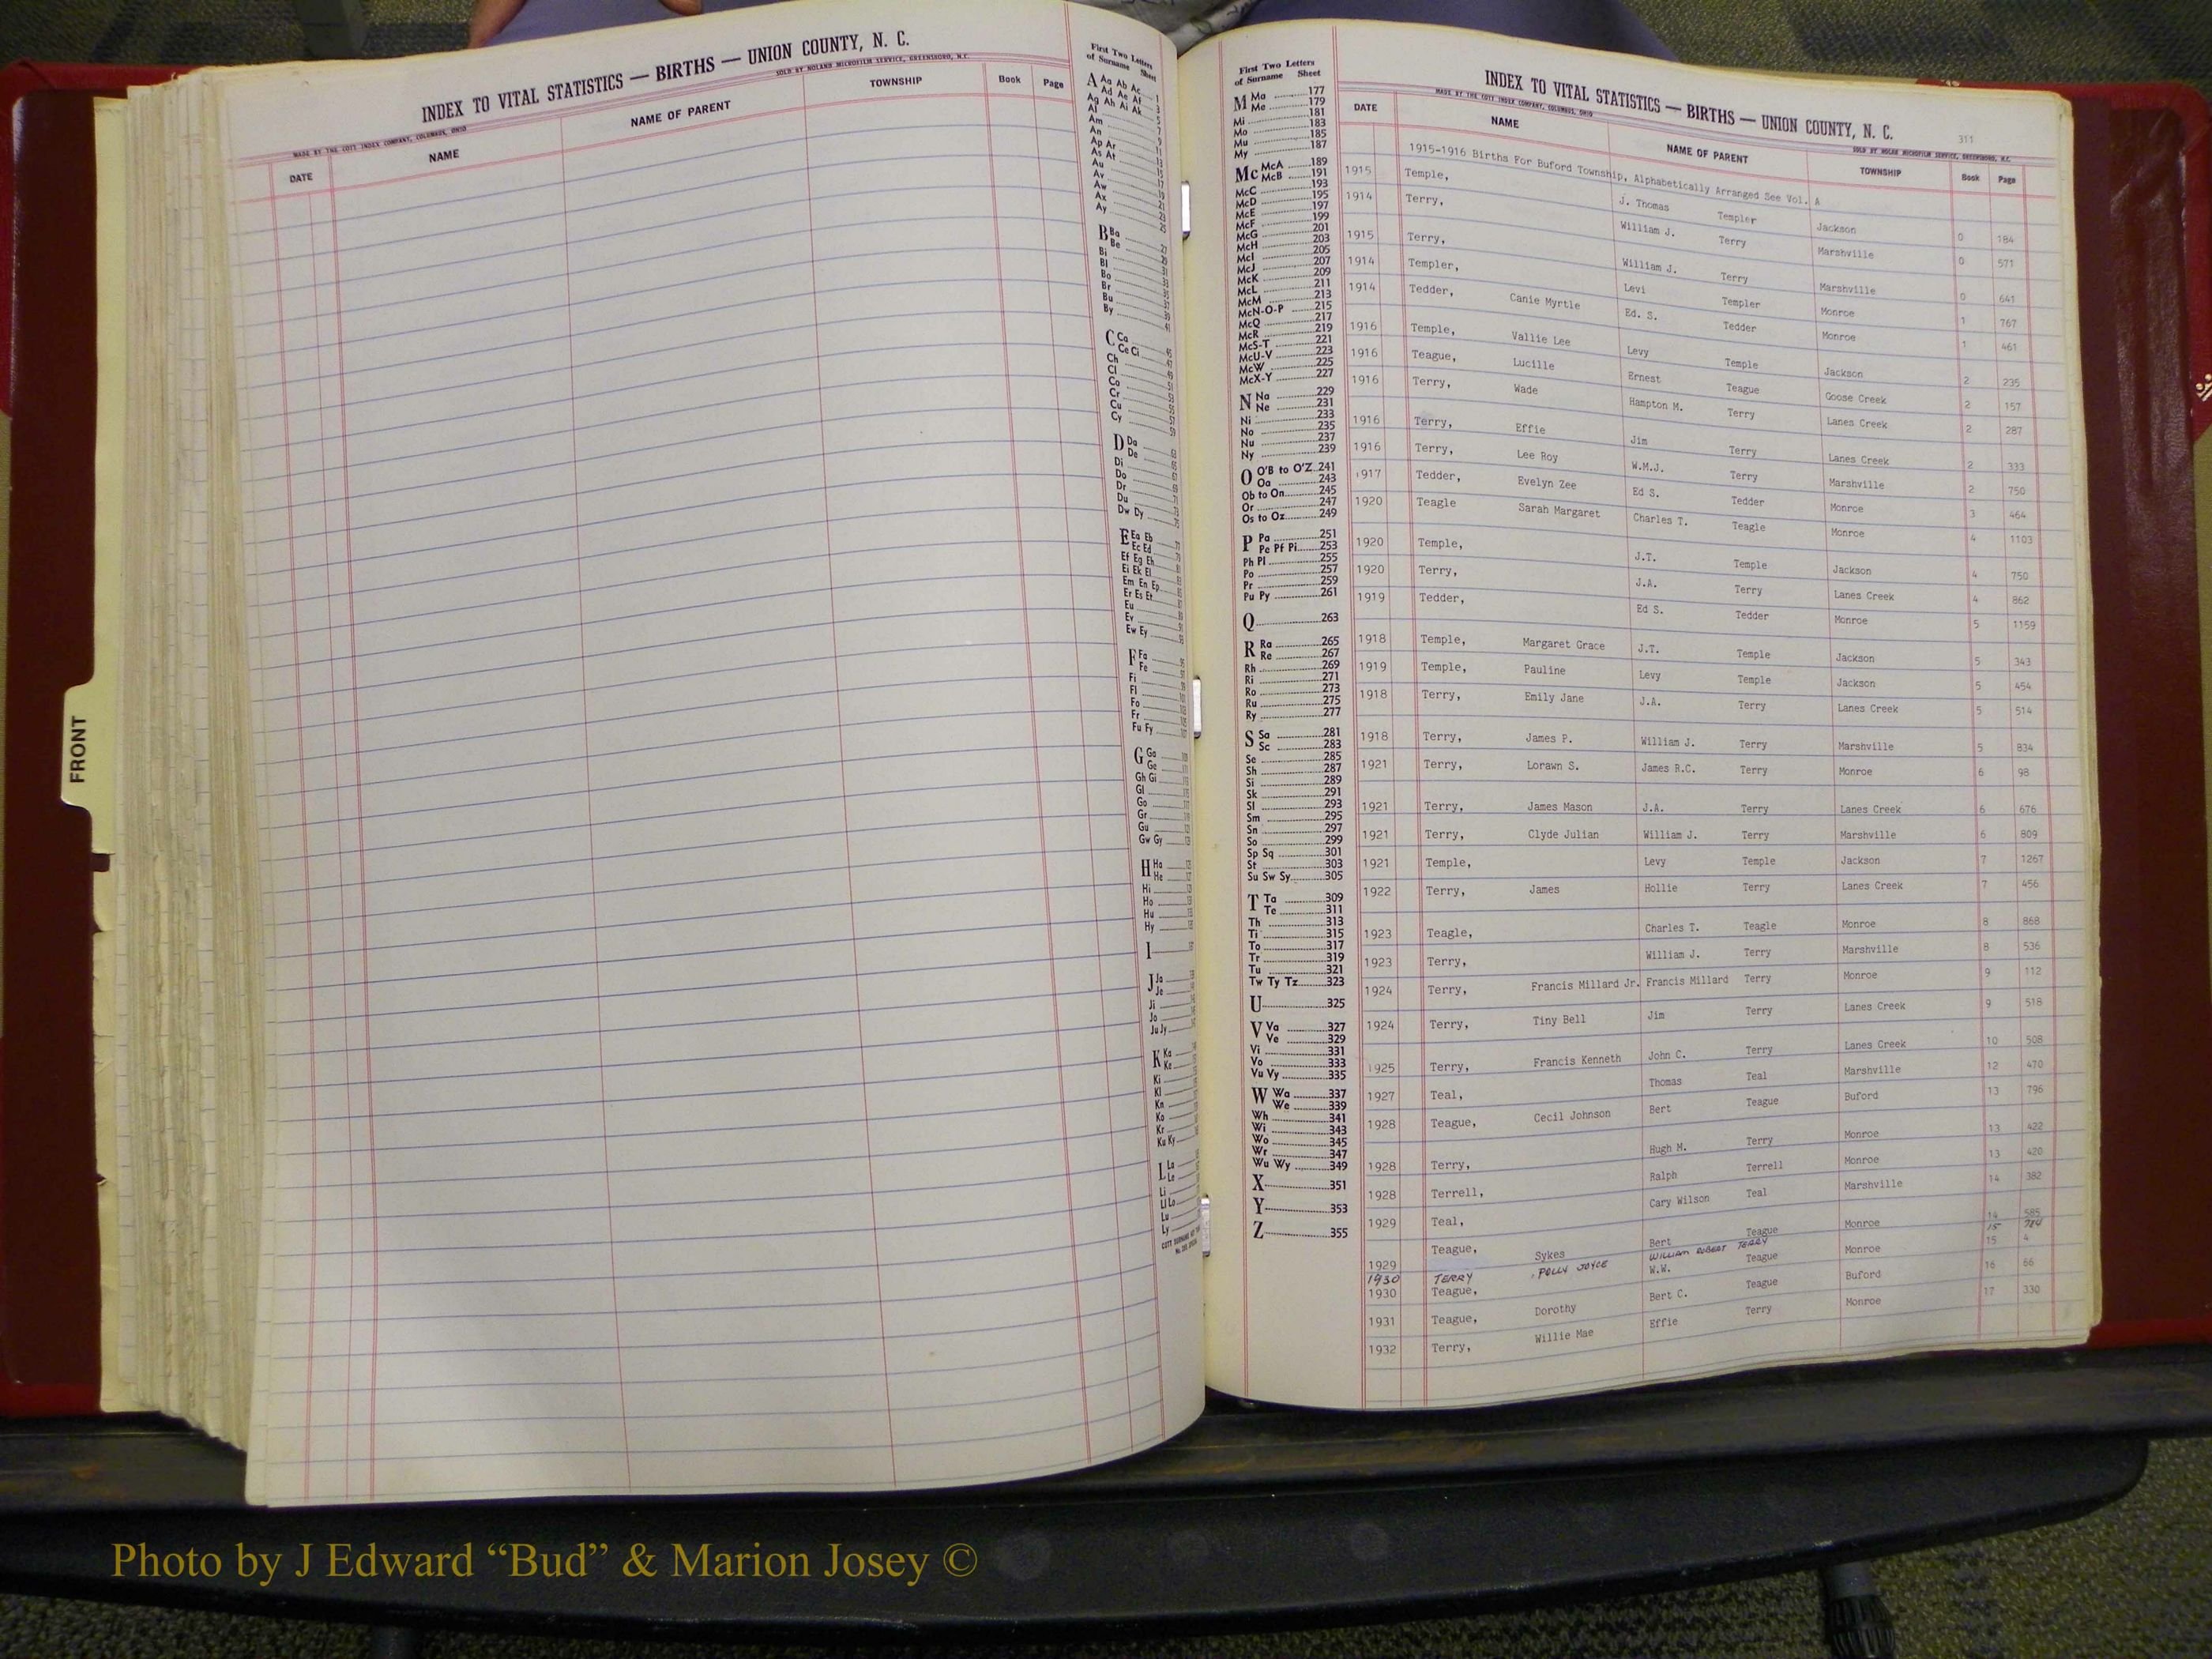 INDEX TO VITAL STATISTICS — BIRTHS — UNION COUNTY, N. C.
MADE BY THE COTT INDEX COMPANY, COLUMBUS, OHIO SOLD BY NOLAND MICROFILM SERVICE, GREENSBORO, N.C.
DATE NAME NAME OF PARENT TOWNSHIP Book Page
First Two Letters
of Surname Sheet
A Aa Ab Ac
Ad Ae Af
Ag Ah Ai Ak
Al
Am
An
Ap Ar
As At
Au
Av
Aw
Ax
Ay
B Ba
Be
Bi
Bl
Bo
Br
Bu
By
C Ca
Ce Ci
Ch
Cl
Co
Cr
Cu
Cy
D Da
De
Di
Do
Dr
Du
Dw Dy
E Ea Eb
Ec Ed
Ef Eg Eh
Ei Ek El
Em En Ep
Er Es Et
Eu
Ev
Ew Ey
F Fa
Fe
Fi
Fl
Fo
Fr
Fu Fy
G Ga
Ge
Gh Gi
Gl
Go
Gr
Gu
Gw Gy
H Ha
He
Hi
Ho
Hu
Hy
I
J Ja
Je
Ji
Jo
Ju Jy
K Ka
Ke
Ki
Kl
Kn
Ko
Kr
Ku Ky
L La
Le
Li
Ll Lo
Lu
Ly
FRONT
First Two Letters
of Surname Sheet
M Ma 177
Me 179
Mi 181
Mo 183
Mu 185
My 187
Mc McA 189
McB 191
McC 193
McD 195
McE 197
McF 199
McG 201
McH 203
McI 205
McJ 207
McK 209
McL 211
McM 213
McN-O-P 215
McQ 217
McR 219
McS-T 221
McU-V 223
McW 225
McX-Y 227
N Na 229
Ne 231
Ni 233
No 235
Nu 237
Ny 239
O O'B to O'Z 241
Oa 243
Ob to On 245
Or 247
Os to Oz 249
P Pa 251
Pe Pf Pi 253
Ph Pl 255
Po 257
Pr 259
Pu Py 261
Q 263
R Ra 265
Re 267
Rh 269
Ri 271
Ro 273
Ru 275
Ry 277
S Sa 281
Sc 283
Se 285
Sh 287
Si 289
Sk 291
Sl 293
Sm 295
Sn 297
So 299
Sp Sq 301
St 303
Su Sw Sy 305
T Ta 309
Te 311
Th 313
Ti 315
To 317
Tr 319
Tu 321
Tw Ty Tz 323
U 325
V Va 327
Ve 329
Vi 331
Vo 333
Vu Vy 335
W Wa 337
We 339
Wh 341
Wi 343
Wo 345
Wr 347
Wu Wy 349
X 351
Y 353
Z 355
INDEX TO VITAL STATISTICS — BIRTHS — UNION COUNTY, N. C. 311
MADE BY THE COTT INDEX COMPANY, COLUMBUS, OHIO SOLD BY NOLAN MICROFILM SERVICE, GREENSBORO, N.C.
DATE NAME NAME OF PARENT TOWNSHIP Book Page
1915-1916 Births For Buford Township, Alphabetically Arranged See Vol. A
1915 Temple, J. Thomas Templer Jackson 0 184
1914 Terry, William J. Terry Marshville 0 571
1915 Terry, William J. Terry Marshville 0 641
1914 Templer, Levi Templer Monroe 1 767
1914 Tedder, Canie Myrtle Ed. S. Tedder Monroe 1 461
1916 Temple, Vallie Lee Levy Temple Jackson 2 235
1916 Teague, Lucille Ernest Teague Goose Creek 2 157
1916 Terry, Wade Hampton M. Terry Lanes Creek 2 287
1916 Terry, Effie Jim Terry Lanes Creek 2 333
1916 Terry, Lee Roy W.M.J. Terry Marshville 2 750
1917 Tedder, Evelyn Zee Ed S. Tedder Monroe 3 464
1920 Teagle Sarah Margaret Charles T. Teagle Monroe 4 1103
1920 Temple, J.T. Temple Jackson 4 750
1920 Terry, J.A. Terry Lanes Creek 4 862
1919 Tedder, Ed S. Tedder Monroe 5 1159
1918 Temple, Margaret Grace J.T. Temple Jackson 5 343
1919 Temple, Pauline Levy Temple Jackson 5 454
1918 Terry, Emily Jane J.A. Terry Lanes Creek 5 514
1918 Terry, James P. William J. Terry Marshville 5 834
1921 Terry, Lorawn S. James R.C. Terry Monroe 6 98
1921 Terry, James Mason J.A. Terry Lanes Creek 6 676
1921 Terry, Clyde Julian William J. Terry Marshville 6 809
1921 Temple, Levy Temple Jackson 7 1267
1922 Terry, James Hollie Terry Lanes Creek 7 456
1923 Teagle, Charles T. Teagle Monroe 8 868
1923 Terry, William J. Terry Marshville 8 536
1924 Terry, Francis Millard Jr. Francis Millard Terry Monroe 9 112
1924 Terry, Tiny Bell Jim Terry Lanes Creek 9 518
1925 Terry, Francis Kenneth John C. Terry Lanes Creek 10 508
1927 Teal, Thomas Teal Marshville 12 470
1928 Teague, Cecil Johnson Bert Teague Buford 13 796
1928 Terry, Hugh M. Terry Monroe 13 422
1928 Terrell, Ralph Terrell Monroe 13 420
1929 Teal, Cary Wilson Teal Marshville 14 382
1929 Teague, Sykes Bert Teague Monroe 14 585
1930 TERRY POLLY JOYCE WILLIAM ROBERT TERRY 15
1930 Teague, W.W. Teague Monroe 15 4
1931 Teague, Dorothy Bert C. Teague Buford 16 66
1932 Terry, Willie Mae Effie Terry Monroe 17 330
Photo by J Edward “Bud” & Marion Josey ©